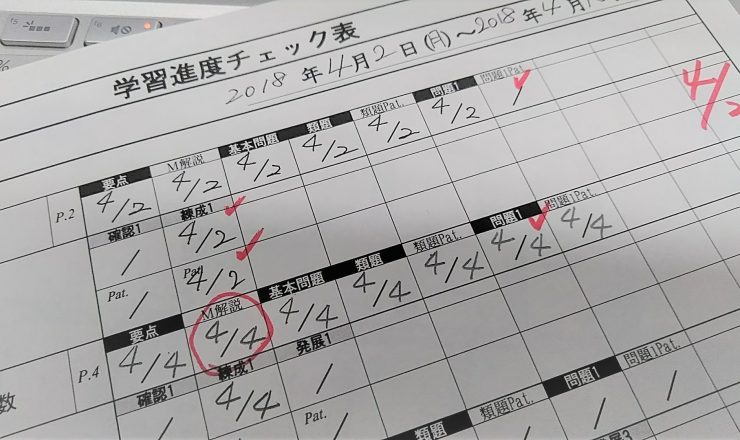 学習進度チェック表
2018年4月2日(月)～2018年4月
要点 M解説 基本問題 類題 類題Pat. 問題1 問題1Pat.
P.2 4/2 4/2 4/2 4/2 4/2 4/2 /
4/2
確認1 練成1
/ 4/2
Pat. / Pat. 4/2
要点 M解説 基本問題 類題 類題Pat. 問題1 問題1Pat.
P.4 4/4 4/4 4/4 4/4 4/4 4/4 4/4
数 確認1 練成1 発展1
4/4 /
Pat.
類題 類題Pat. 問題1 問題1Pat.
/ / / /